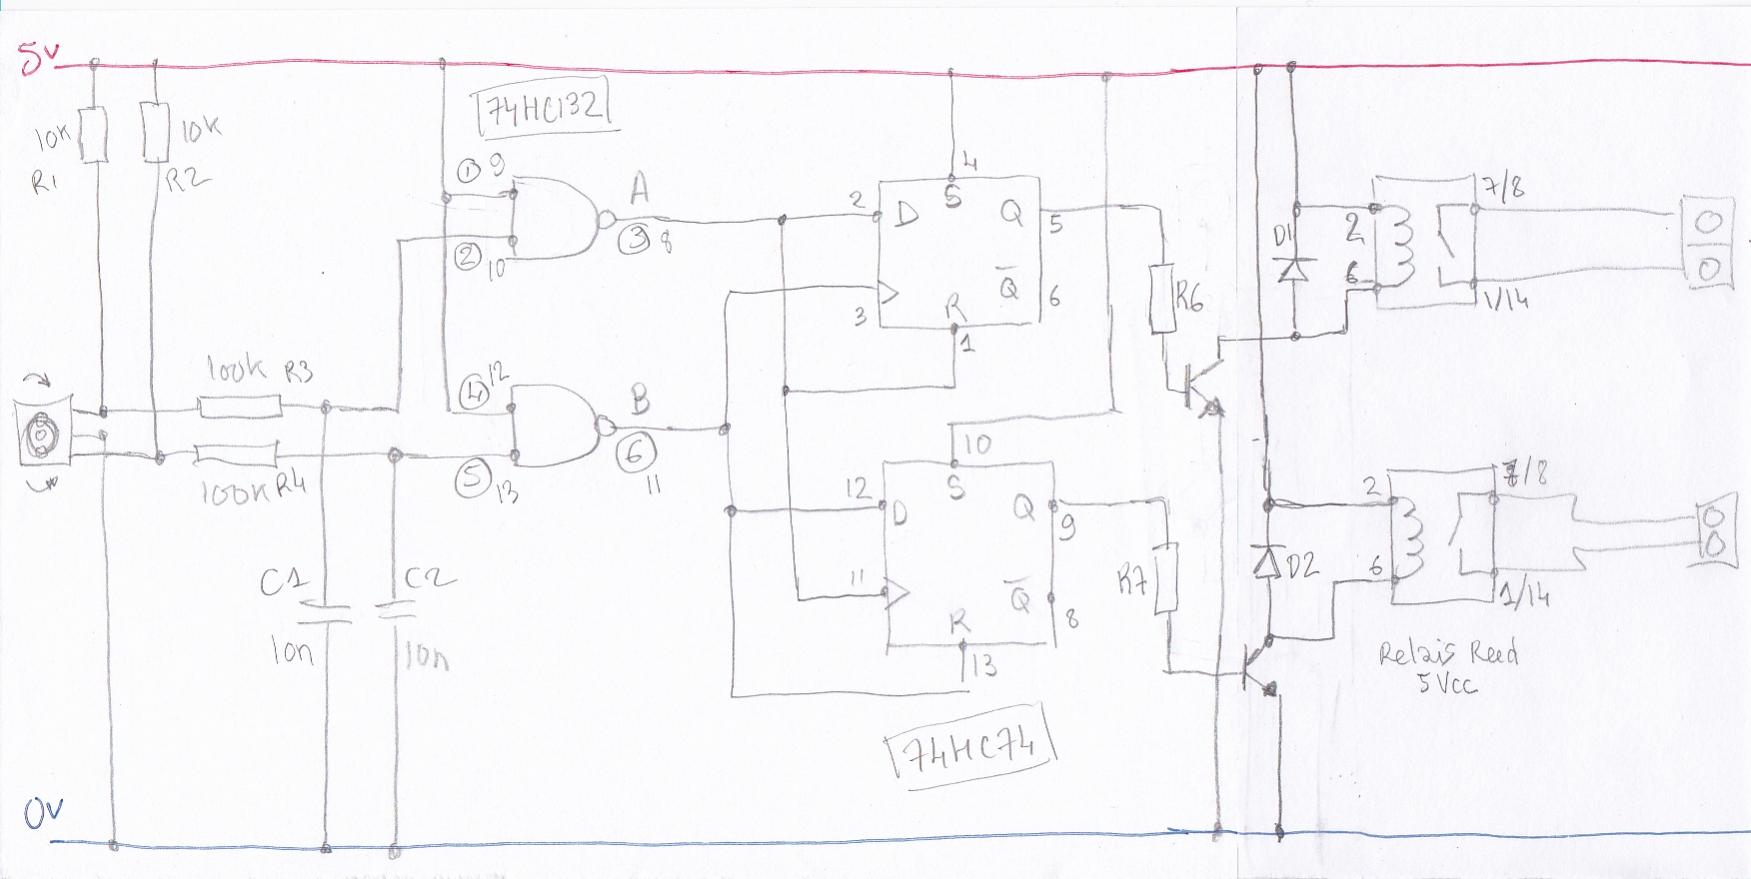 5V
74HC132
10K
10K
R1
R2
① 9
② 10
A
③ 8
2
D
4
S
Q
5
3
Q̅
6
R
1
R6
D1
2
6
7/8
1/14
100K R3
100K R4
④ 12
⑤ 13
B
⑥ 11
10
12
D
S
Q
9
11
Q̅
8
R
13
R7
D2
2
6
7/8
1/14
C1
10n
C2
10n
Relais Reed
5Vcc
74HC74
0V